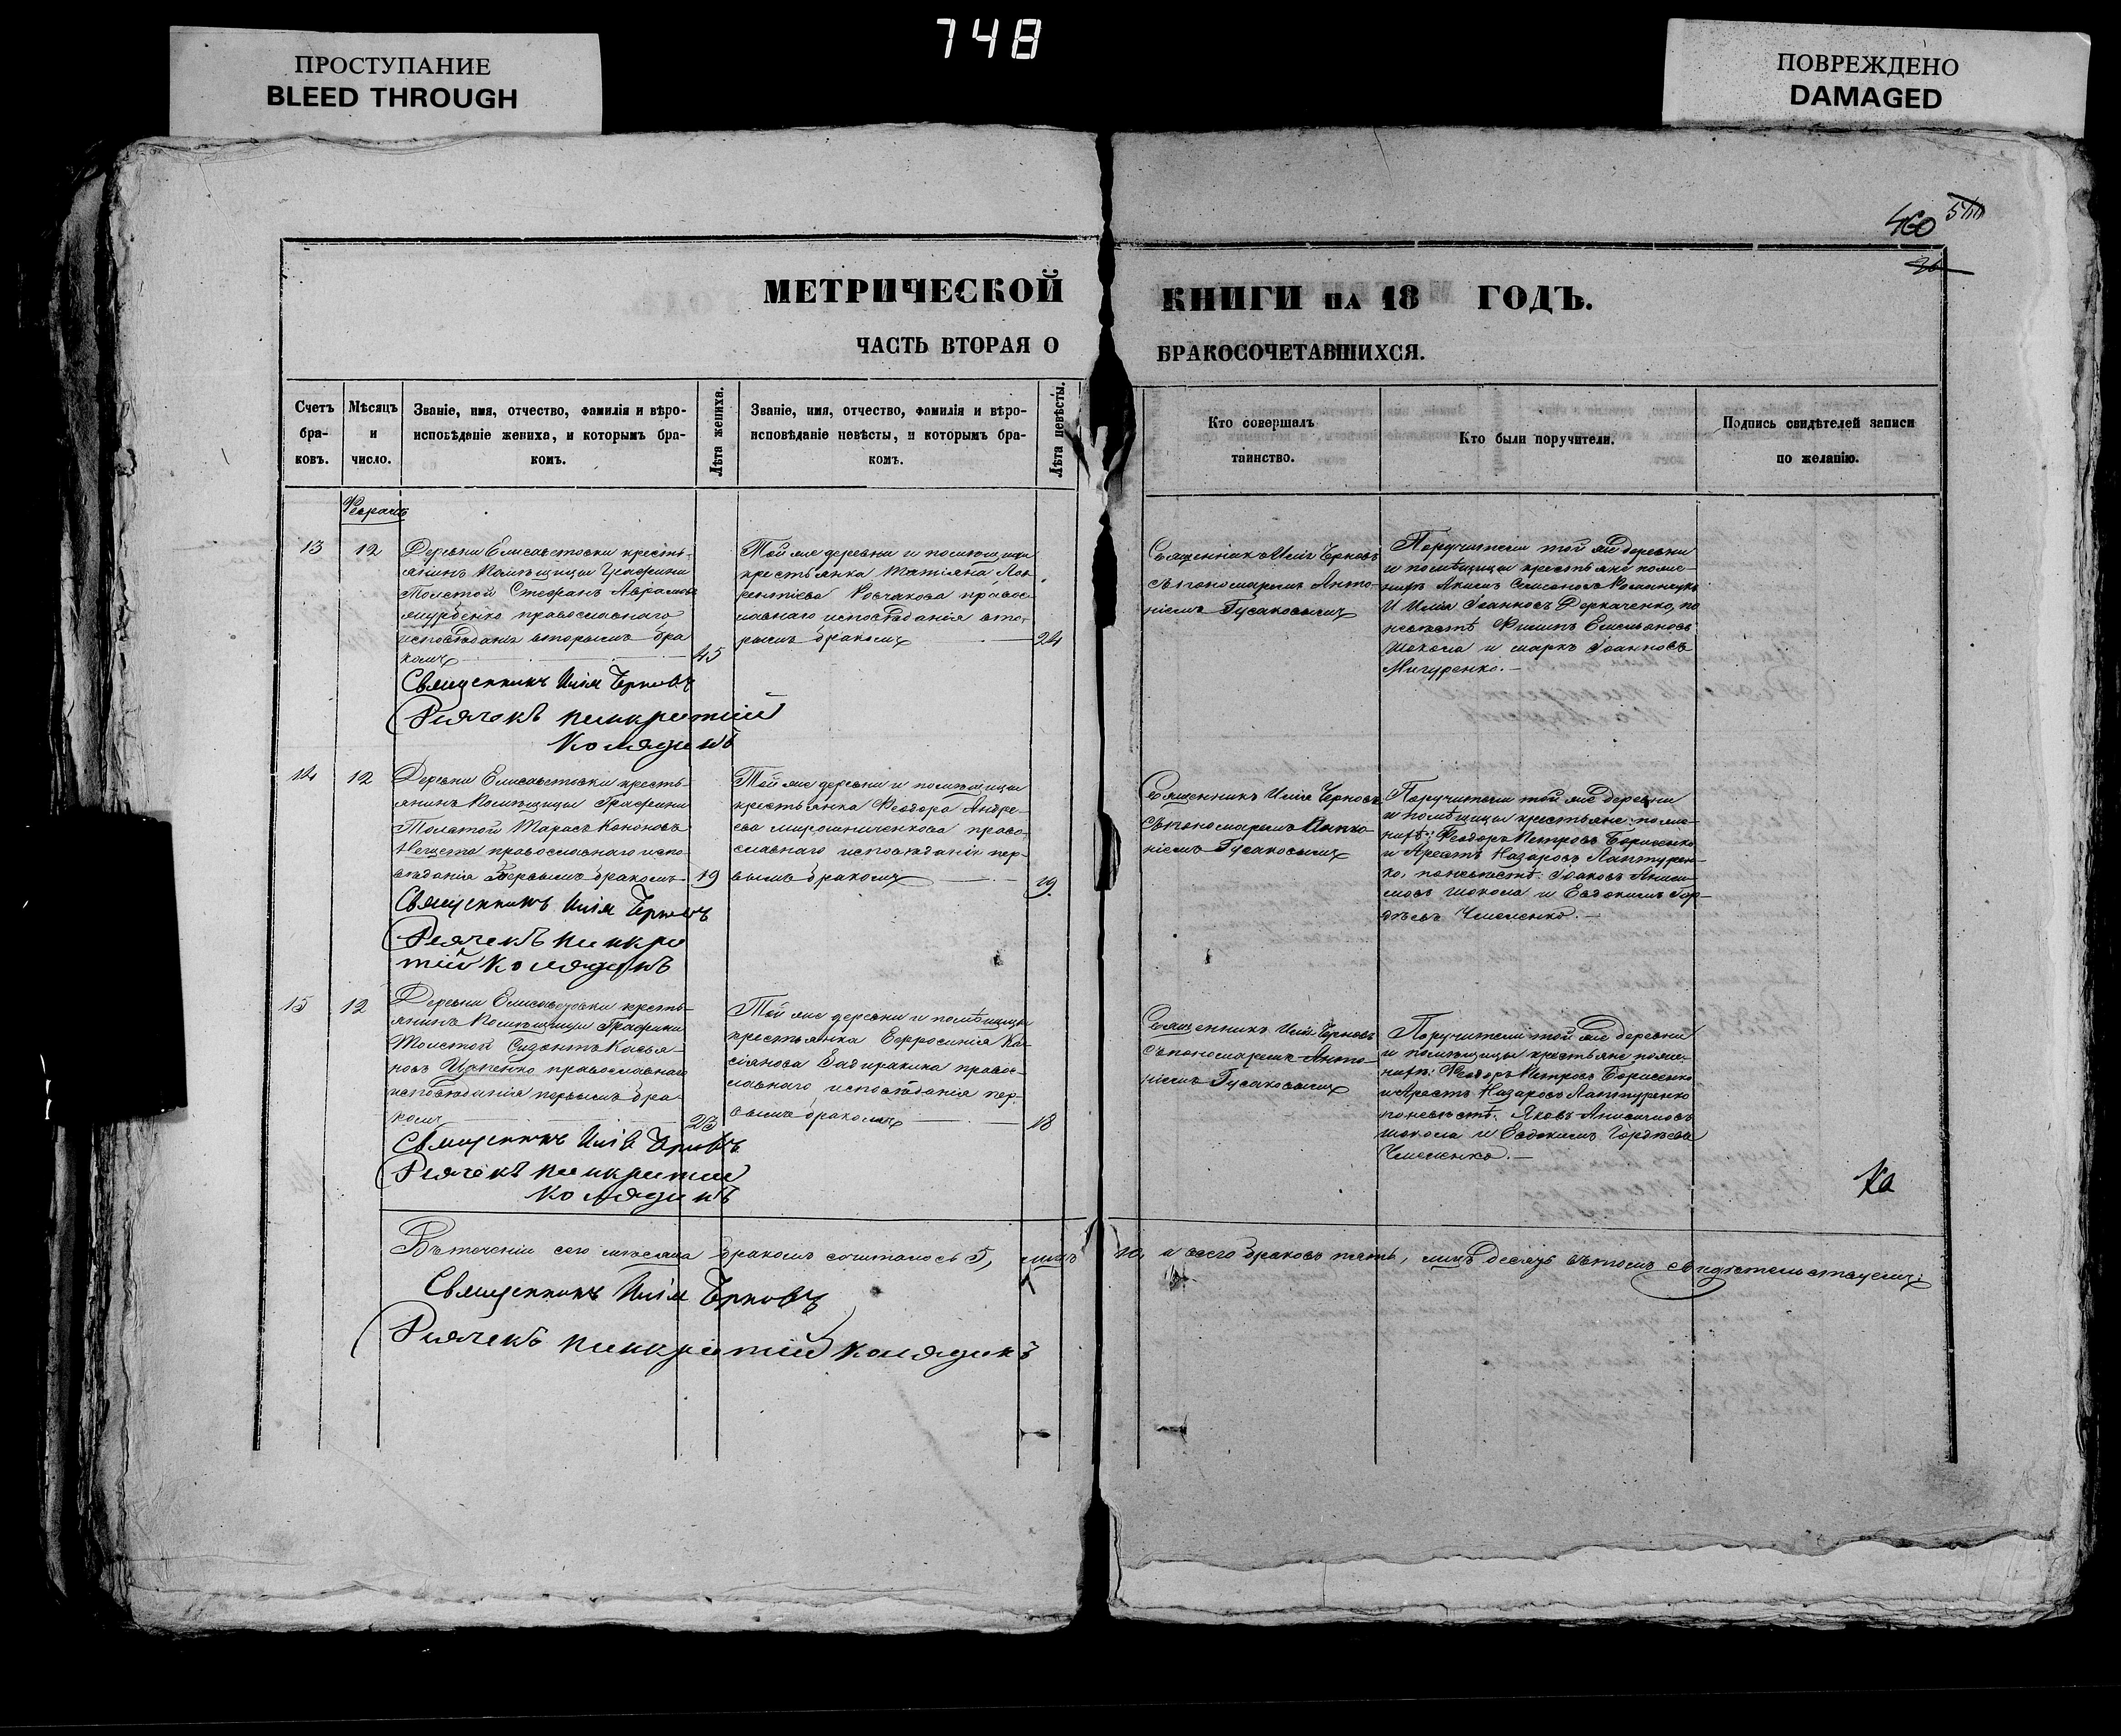 748
ПРОСТУПАНИЕ
BLEED THROUGH
ПОВРЕЖДЕНО
DAMAGED
460
МЕТРИЧЕСКОЙ КНИГИ НА 18 ГОДЪ.
ЧАСТЬ ВТОРАЯ О БРАКОСОЧЕТАВШИХСЯ.
Счетъ бра-ковъ.
Мѣсяцъ и число.
Званіе, имя, отчество, фамилія и вѣро-
исповѣданіе жениха, и которымъ бра-
комъ.
Лѣта жениха.
Званіе, имя, отчество, фамилія и вѣро-
исповѣданіе невѣсты, и которымъ бра-
комъ.
Лѣта невѣсты.
Кто совершалъ
таинство.
Кто были поручители.
Подпись свидѣтелей записи
по желанію.
13
12
Деревни Елисаветовки кресть-
янинъ Помѣщицы Графини
Толстой Стефанъ Аврамовъ
православнаго
исповѣданія вторымъ бра
комъ
45
Священникъ Илія Черновъ
Дьячекъ Панкратій
Колядинъ
Той же деревни и помѣщицы
крестьянка Татіана Лав
рентіева православ
славнаго исповѣданія вто,
рымъ бракомъ
24
Священникъ Илія Черновъ
съ пономаремъ Анто-
ніемъ Гусаковымъ
Поручители той же деревни
и помѣщицы крестьяне по же-
нихѣ Акимъ Семеновъ
И Илія Іоанновъ Деркаченко, по
невѣстѣ Филипъ Емельяновъ
Шокола и Маркъ Іоанновъ
Мигуренко.
14
12
Деревни Елисаветовки кресть-
янинъ Помѣщицы Графини
Толстой Тарасъ Кононовъ
Нещета православнаго испо-
вѣданія Первымъ бракомъ
19
Священникъ Илія Черновъ
Дьячекъ Панкра
тій Колядинъ
Той же деревни и помѣщицы
крестьянка Феодора Андре-
ева Мирошниченкова право-
славнаго исповѣданія пер-
вымъ бракомъ
19.
Священникъ Илія Черновъ
съ пономаремъ
ніемъ Гусаковымъ
Поручители той же деревни
и помѣщицы крестьяне: по же-
нихѣ: Феодоръ Петровъ Борисенко
и Арестъ Назаровъ Лаптурен-
ко, по невѣстѣ: Іоаковъ Аниси-
мовъ Шокола и Евдокимъ Гор-
дѣевъ Чмеленко.
15
12
Деревни Елисаветовки кресть-
янинъ Помѣщицы Графини
Толстой Сизонтъ Касья-
новъ Цапенко православнаго
исповѣданія первымъ бра
комъ
23
Священникъ Илія Черновъ
Дьячекъ Панкратій
Колядинъ
Той же деревни и помѣщицы
крестьянка Евфросинія Ка-
сіянова Задиракина правос-
лавнаго исповѣданія пер-
вымъ бракомъ
18
Священникъ Илія Черновъ
съ пономаремъ Анто-
ніемъ Гусаковымъ
Поручители той же деревни
и помѣщицы крестьяне по же-
нихѣ: Феодоръ Петровъ Борисенко
и Арестъ Назаровъ Лаптуренко
по невѣстѣ: Яковъ Анисимовъ
Шокола и Евдокимъ Гордѣевъ
Чмеленко.
Въ теченіи сего мѣсяца бракомъ сочиталось 5, лицъ 10, а всего браковъ пять, лицъ десять въ томъ свидѣтельствуемъ:
Священникъ Илія Черновъ
Дьячекъ Панкратій Колядинъ